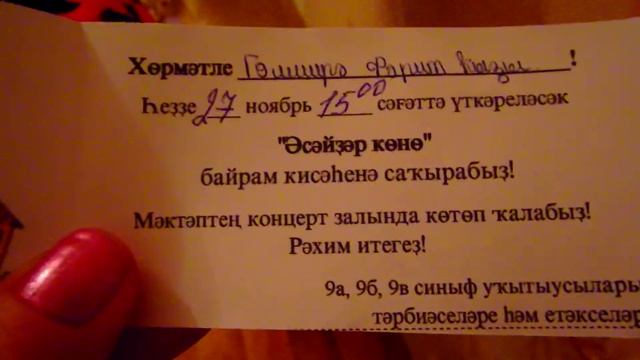 Хөрмәтле Гөлширә Фарит кызы !
Һеҙҙе 27 ноябрь 15 00 сәғәттә үткәреләсәк
"Әсәйҙәр көнө"
байрам кисәһенә саҡырабыҙ!
Мәктәптең концерт залында көтөп ҡалабыҙ!
Рәхим итегеҙ!
9а, 9б, 9в синыф уҡытыусылары
тәрбиәселәре һәм етәкселәр